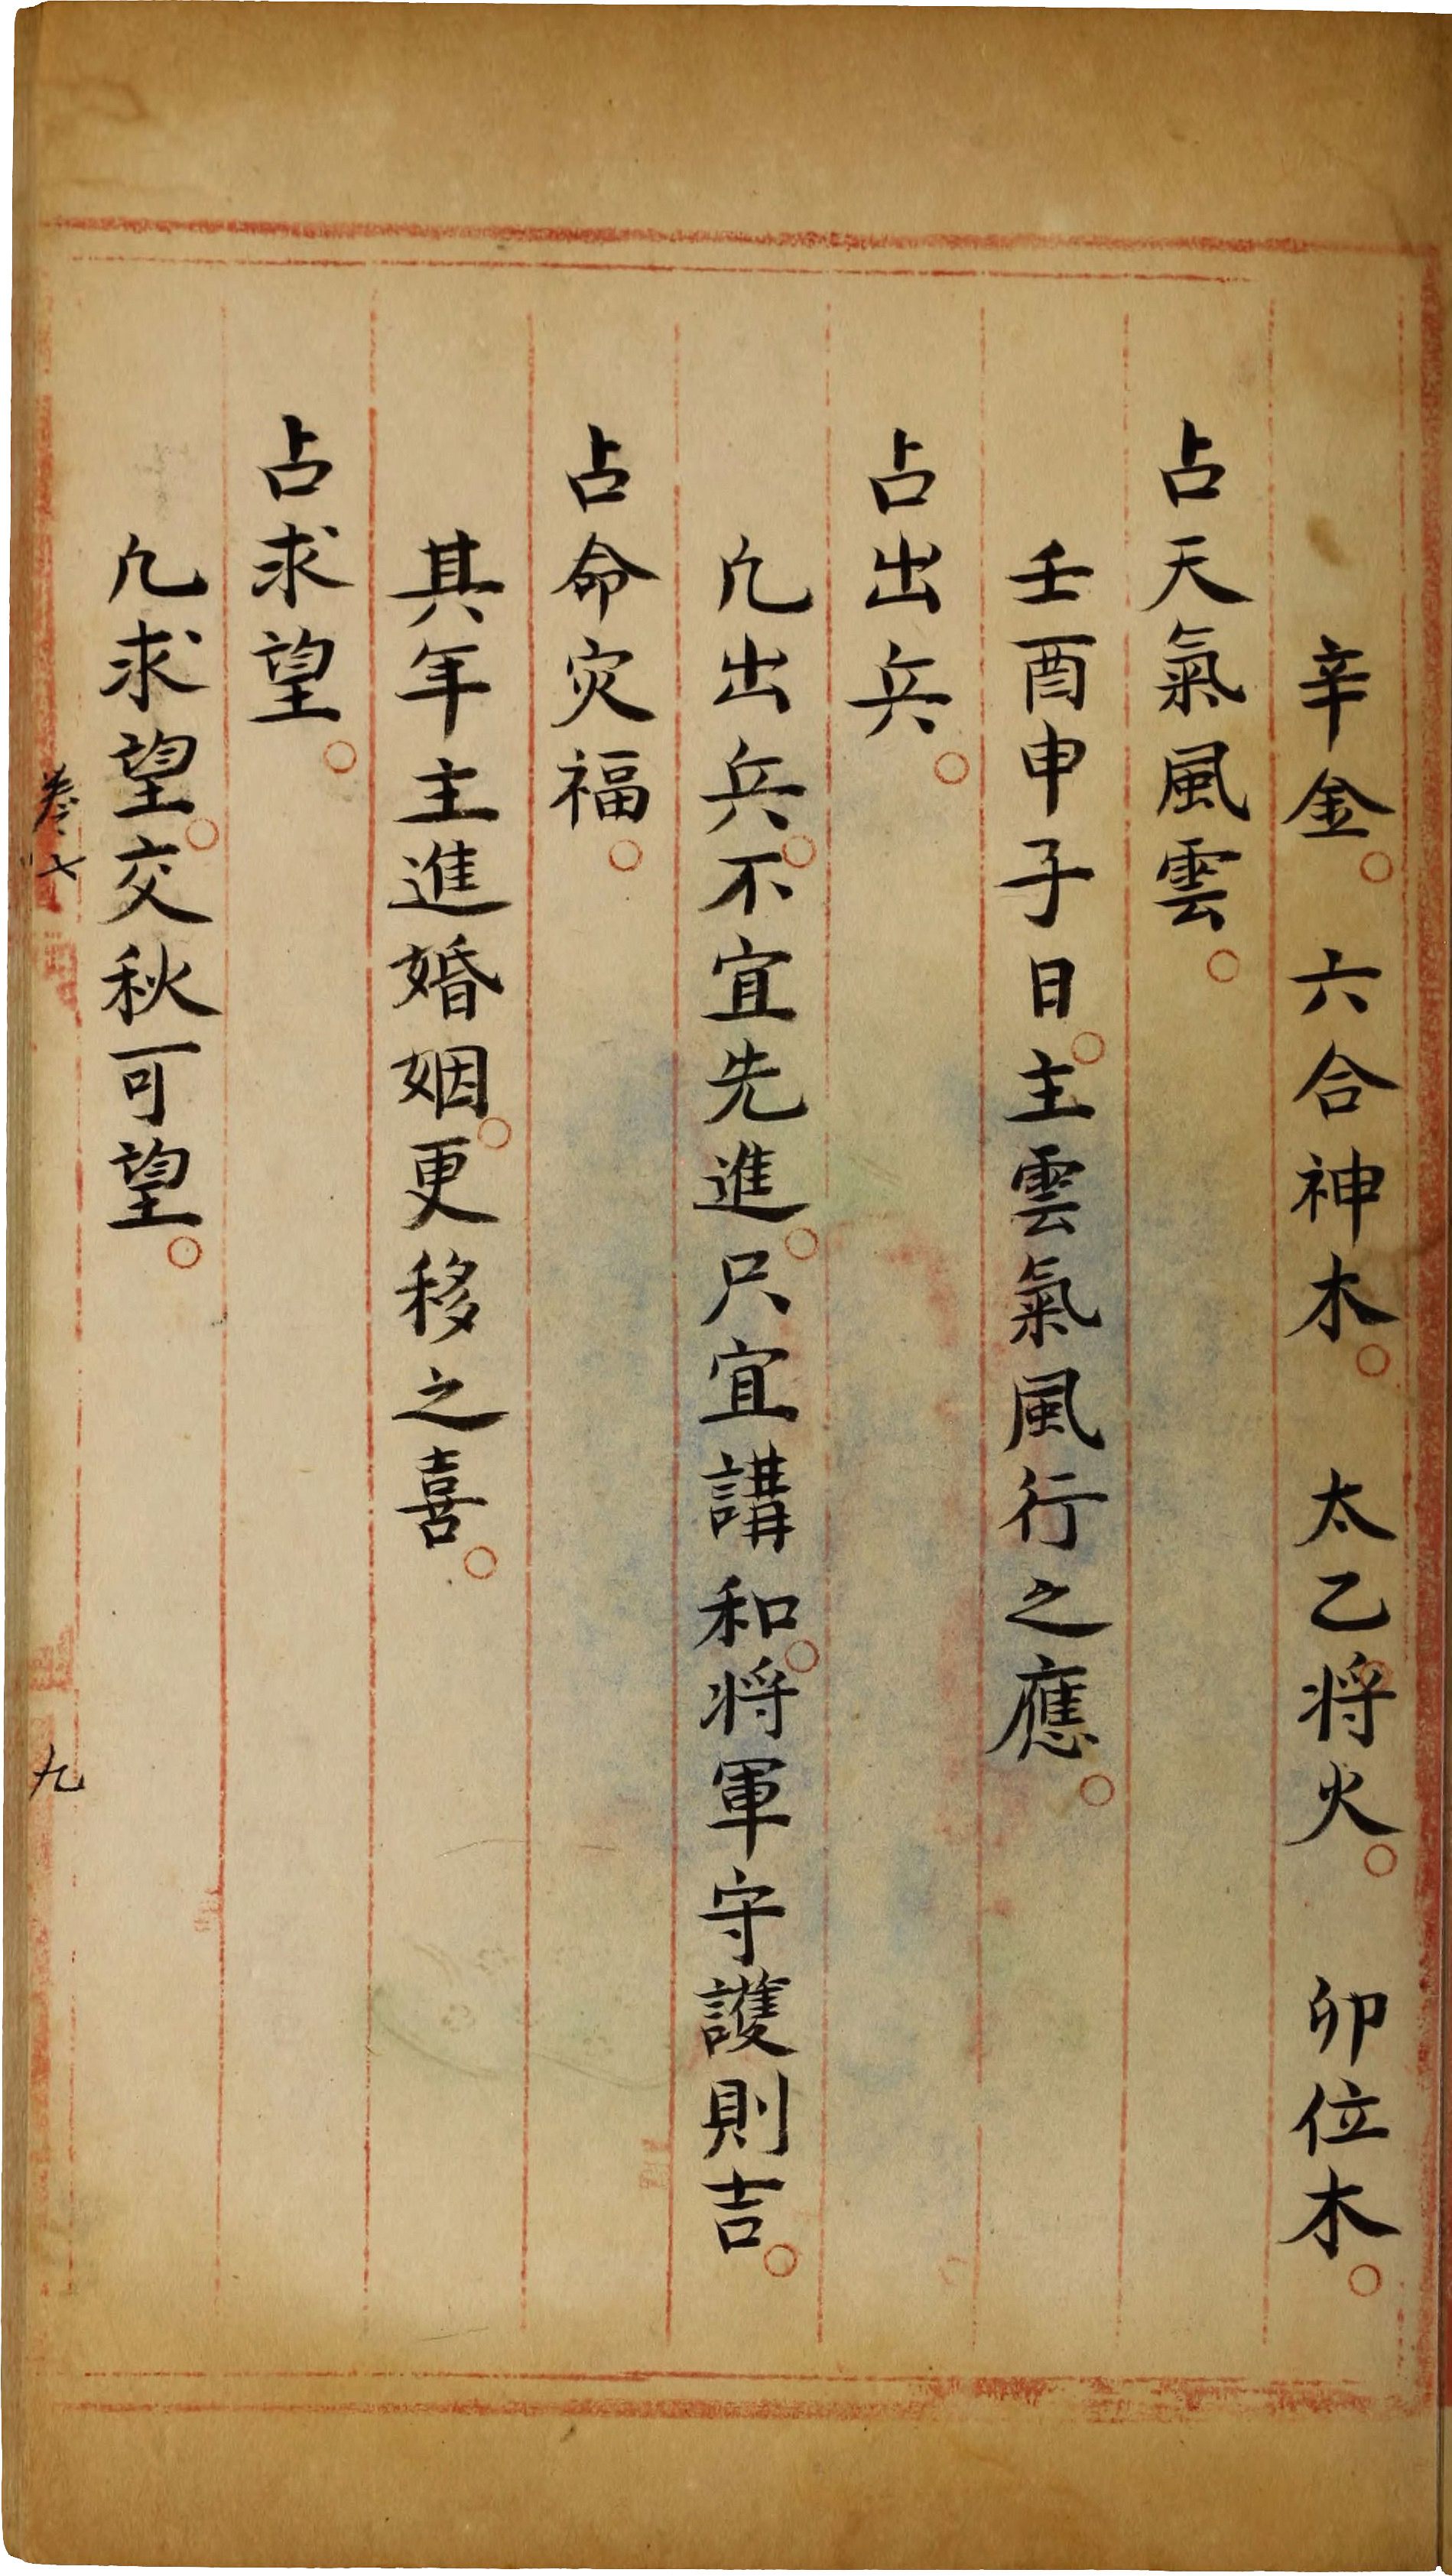 辛金。六合神木。太乙将火。卯位木。
占天氣風雲。
壬酉申子日。主雲氣風行之應。
占出兵。
凢出兵。不宜先進。只宜講和。将軍守護則吉。
占命灾福。
其年主進婚姻。更移之喜。
占求望。
凢求望。交秋可望。
卷七
九